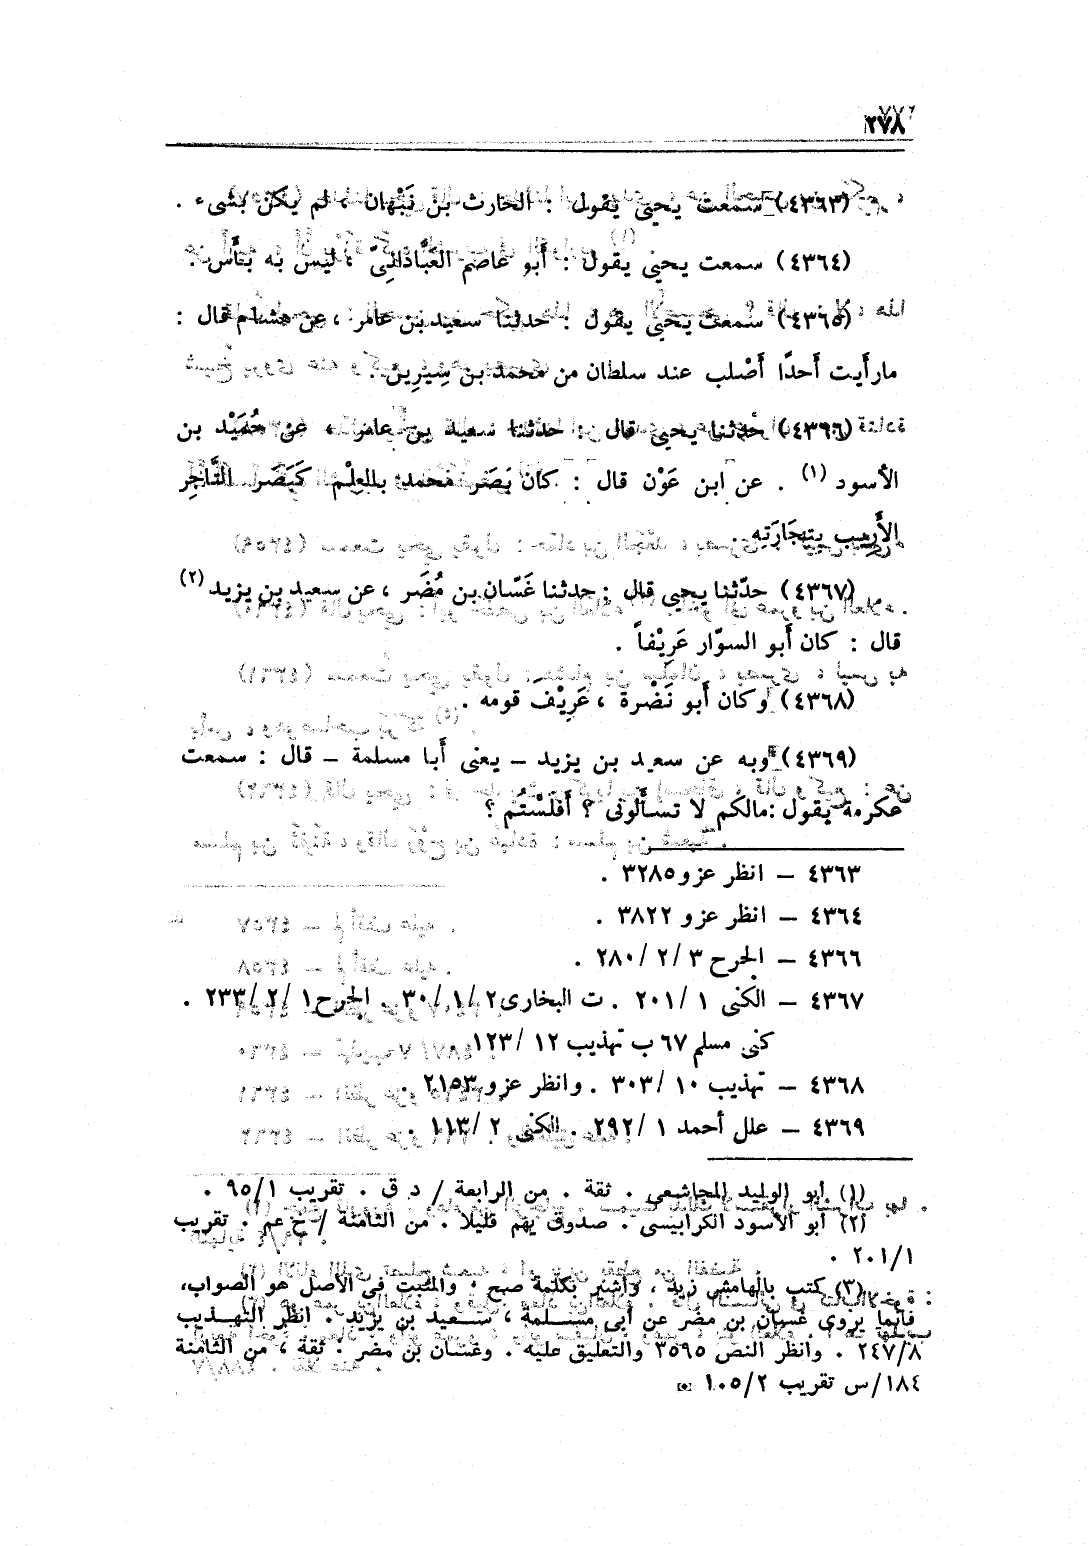 ٢٧٨
(٤٣٦٣) سمعت يحيى يقول : الحارث بن نَبْهان ، لم يكن بشىء .
(٤٣٦٤) سمعت يحيى يقول : أَبو عاصم العَبَّادَانِىّ ، ليس به بأس .
(٤٣٦٥) سمعت يحيى يقول : حدثنا سعيد بن عامر ، عن هشام قال :
مارأَيت أَحدًا أَصْلب عند سلطان من محمد بن سِيرِين .
(٤٣٦٦) حدّثنا يحيى قال : حدثنا سعيد بن عامر ، عن حُمَيْد بن
الأسود (١) . عن ابن عَوْن قال : كان بَصَر محمد بالعِلْم كَبَصَر التَّاجِر
الأَرِيب بِتِجَارَتِه .
(٤٣٦٧) حدّثنا يحيى قال : حدثنا غَسّان بن مُضَر ، عن سعيد بن يزيد (٢)
قال : كان أَبو السوّار عَرِيْفاً .
(٤٣٦٨) وكان أَبو نَضْرة ، عَرِيْف قومه .
(٤٣٦٩) وبه عن سعيد بن يزيد – يعنى أَبا مسلمة – قال : سمعت
عكرمة يقول : مالكم لا تسأَلونى ؟ أَفَلَسْتُم ؟
٤٣٦٣ – انظر عزو ٣٢٨٥ .
٤٣٦٤ – انظر عزو ٣٨٢٢ .
٤٣٦٦ – الجرح ٣ /٢ /٢٨٠ .
٤٣٦٧ – الكنى ١ /٢٠١ . ت البخارى ٢ /١ /٣٠ . الجرح ١ /٢ /٢٣٣ .
كنى مسلم ٦٧ ب تهذيب ١٢ /١٢٣
٤٣٦٨ – تهذيب ١٠ /٣٠٣ . وانظر عزو ٢١٥٣ .
٤٣٦٩ – علل أحمد ١ /٢٩٢ . الكنى ٢ /١١٣ .
(١) أبو الوليد المجاشعي . ثقة . من الرابعة / د ق . تقريب ٩٥/١ .
(٢) أبو الأسود الكرابيسى . صدوق يهم قليلا . من الثامنة / خ عم . تقريب
٢٠١/١ .
(٣) كتب بالهامش زيد ، وأشير بكلمة صح . والمثبت فى الأصل هو الصواب،
فانما يروى غسان بن مضر عن أبى مسلمة ، سعيد بن يزيد . انظر التهذيب
٢٤٧/٨ . وانظر النص ٣٥٩٥ والتعليق عليه . وغسان بن مضر . ثقة ، من الثامنة
١٨٤/س تقريب ١٠٥/٢